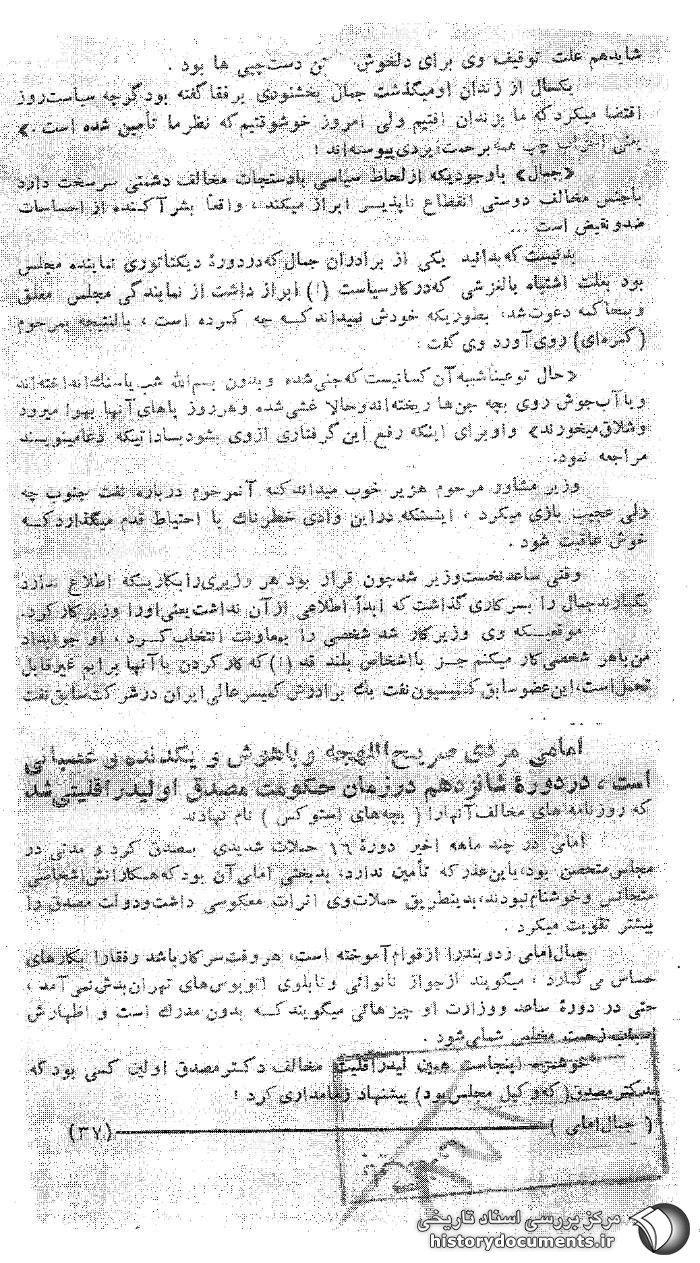 شاید هم علت توقیف وی برای دلخوش تن دست‌چپی ها بود .
یکسال از زندان او میگذشت جمال بخشنودی برفقا گفته بود گرچه سیاست روز
اقتضا میکرد که ما بزندان افتیم ولی امروز خوشوقتیم که نظر ما تأمین شده است .»
یعنی احزاب چپ همه برحمت ایزدی پیوسته‌اند !
«جمال» باوجودیکه از لحاظ سیاسی بادستجات مخالف دشمنی سرسخت دارد
باجنس مخالف دوستی انقطاع ناپذیر ابراز میکند ، واقعاً بشر آکنده از احساسات
ضد و نقیض است ...
بدنیست که بدانید یکی از برادران جمال که در دورهٔ دیکتاتوری نماینده مجلس
بود بعلت اشتباه یا لغزشی که در کار سیاست (!) ابراز داشت از نمایندگی مجلس معلق
و بمحاکمه دعوت شد، بطوریکه خودش نمیداند که چه کرده است ، بالنتیجه بمرحوم
(کمره‌ای) روی آورد وی گفت :
«حال تو عیناً شبیه آن کسانیست که جنی شده و بدون بسم‌الله شب یا سنگ انداخته‌اند
و یا آب جوش روی بچه جن‌ها ریخته‌اند و حالا غشی شده و هر روز پاهای آنها بهوا میرود
و شلاق میخورند» و او برای اینکه رفع این گرفتاری از وی بشود بساداتیکه دعا مینویسند
مراجعه نمود.
وزیر مشاور مرحوم هژیر خوب میداند که آنمرحوم درباره نفت جنوب چه
رلی عجیب بازی میکرد ، اینستکه در این وادی خطرناک با احتیاط قدم میگذارد که
خوش عاقبت شود .
وقتی ساعد نخست‌وزیر شد چون قرار بود هر وزیری را بکاریکه اطلاع ندارد
بگمارند جمال را بسر کاری گذاشت که ابداً اطلاعی از آن نداشت یعنی او را وزیر کار کرد.
موقعیکه وی وزیر کار شد شخصی را بمعاونت انتخاب کرد ، او جوابداد
من باهر شخصی کار میکنم جز با اشخاص بلند قد (!) که کار کردن با آنها برایم غیرقابل
تحمل است، این عضو سابق کمیسیون نفت یک برادرش کمیسر عالی ایران در شرکت سابق نفت
امامی مردی صریح‌اللهجه و باهوش و یکدنده و عصبانی
است ، در دورهٔ شانزدهم در زمان حکومت مصدق او لیدر اقلیتی شد
که روزنامه های مخالف آنهارا ( بچه‌های استوکس ) نام نهادند
امامی در چند ماهه اخیر دورهٔ ۱۶ حملات شدیدی بمصدق کرد و مدتی در
مجلس متحصن بود، باین عذر که تأمین ندارد، بدبختی امامی آن بود که همکارانش اشخاصی
متجانس و خوشنام نبودند، بدینطریق حملات وی اثرات معکوسی داشت و دولت مصدق را
بیشتر تقویت میکرد .
جمال امامی زدوبند را از قوام آموخته است، هر وقت سر کار باشد رفقا را بکارهای
حساس می‌گمارد ، میگویند از جواز نانوائی و تابلوی اتوبوس‌های تهران بدش نمی‌آمد ،
حتی در دورهٔ ساعد و وزارت او چیزهائی میگویند که بدون مدرک است و اظهارش
اسباب زحمت مخلص شما می‌شود .
خوشمزه اینجاست همین لیدر اقلیت مخالف دکتر مصدق اولین کسی بود که
بدکتر مصدق (که وکیل مجلس بود) پیشنهاد زمامداری کرد !
( جمال امامی )
(۳۷)
مرکز بررسی اسناد تاریخی
historydocuments.ir